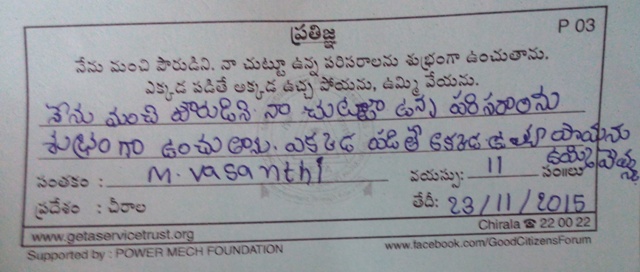 ప్రతిజ్ఞ
P 03
నేను మంచి పౌరుడిని. నా చుట్టూ ఉన్న పరిసరాలను శుభ్రంగా ఉంచుతాను.
ఎక్కడ పడితే అక్కడ ఉచ్చ పోయను, ఉమ్మి వేయను.
నేను మంచి పౌరుడిని. నా చుట్టూ ఉన్న పరిసరాలను
శుభ్రంగా ఉంచుతాను. ఎక్కడ పడితే అక్కడ ఉచ్చ పోయను
ఉమ్మి వెయ్న
సంతకం : M. Vasanthi వయస్సు: 11 సం॥లు
ప్రదేశం : చీరాల తేదీ: 23/11/2015
www.getaservicetrust.org Chirala ☎ 22 00 22
Supported by : POWER MECH FOUNDATION www.facebook.com/GoodCitizensForum